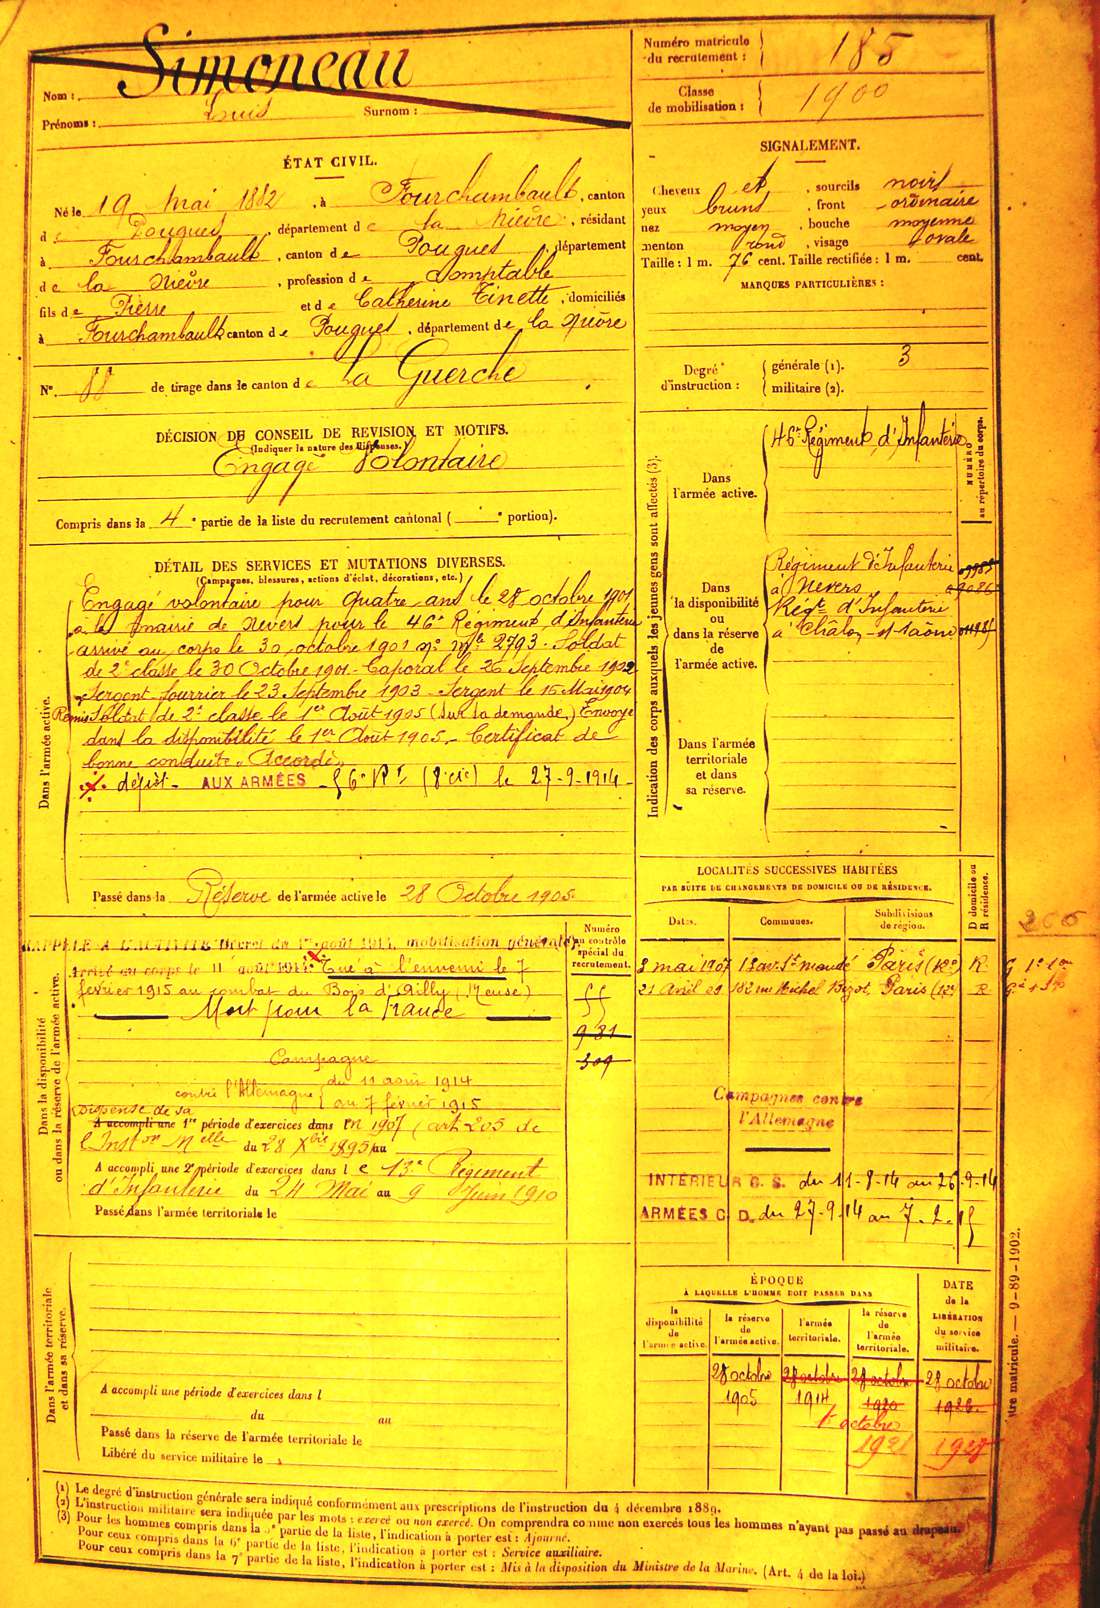 Simoneau
Nom :
Prénoms : Louis Surnom :
Numéro matricule du recrutement : 185
Classe de mobilisation : 1900
ÉTAT CIVIL.
Né le 19 Mai 1882, à Fourchambault, canton
de Pougues, département de la Nièvre, résidant
à Fourchambault, canton de Pougues, département
de la Nièvre, profession de Comptable
fils de Pierre et de Catherine Tinette, domiciliés
à Fourchambault, canton de Pougues, département de la Nièvre
N° de tirage dans le canton de La Guerche
DÉCISION DU CONSEIL DE REVISION ET MOTIFS.
(Indiquer la nature des dispenses.)
Engagé Volontaire
Compris dans la 4e partie de la liste du recrutement cantonal ( portion).
DÉTAIL DES SERVICES ET MUTATIONS DIVERSES.
(Campagnes, blessures, actions d'éclat, décorations, etc.)
Dans l'armée active.
Engagé volontaire pour quatre ans le 28 octobre 1901
à la mairie de Nevers pour le 46e Régiment d'Infanterie
arrivé au corps le 30 octobre 1901 no mle 2793. Soldat
de 2e classe le 30 Octobre 1901. Caporal le 26 Septembre 1902
Sergent fourrier le 23 Septembre 1903. Sergent le 15 Mai 1904
Remis Soldat de 2e classe le 1er Août 1905 (sur sa demande.) Envoyé
dans la disponibilité le 1er Août 1905. Certificat de
bonne conduite "Accordé"
dépôt - AUX ARMÉES - 56e RI (8e cie) le 27-9-1914
Passé dans la Réserve de l'armée active le 28 Octobre 1905
Dans la disponibilité
ou dans la réserve de l'armée active.
Numéro au contrôle spécial du recrutement.
RAPPELÉ A L'ACTIVITÉ Décret du 1er août 1914, mobilisation générale
Arrivé au corps le 11 août 1914. Tué à l'ennemi le 7
février 1915 au combat du Bois d'Ailly (Meuse)
Mort pour la France
931
509
Campagne
contre l'Allemagne { du 11 août 1914
au 7 février 1915
Dispensé de sa
A accompli une 1re période d'exercices dans en 1907 (art 205 de
l'Inston Melle du 28 Xbre 1895) au
A accompli une 2e période d'exercices dans le 13e Régiment
d'Infanterie du 24 Mai au 9 Juin 1910
Passé dans l'armée territoriale le
Dans l'armée territoriale
et dans sa réserve.
A accompli une période d'exercices dans l
du au
Passé dans la réserve de l'armée territoriale le
Libéré du service militaire le
SIGNALEMENT.
Cheveux et, sourcils noirs
yeux bruns, front ordinaire
nez moyen, bouche moyenne
menton rond, visage ovale
Taille : 1 m. 76 cent. Taille rectifiée : 1 m. cent.
MARQUES PARTICULIÈRES :
Degré d'instruction : { générale (1). 3
militaire (2).
Indication des corps auxquels les jeunes gens sont affectés (3).
NUMÉRO au répertoire du corps.
Dans l'armée active. { 46e Régiment d'Infanterie
Dans la disponibilité ou dans la réserve de l'armée active.
Régiment d'Infanterie
à Nevers
Régt d'Infanterie
à Châlon-s-Saône
Dans l'armée territoriale et dans sa réserve.
LOCALITÉS SUCCESSIVES HABITÉES
PAR SUITE DE CHANGEMENTS DE DOMICILE OU DE RÉSIDENCE.
D domicile ou R résidence.
Dates. Communes. Subdivisions de région.
206
3 mai 1907 av. St mandé Paris (12e) R
21 Avril Michel Bizot, Paris (12e) R
Campagnes contre
l'Allemagne
INTÉRIEUR C. S. du 11-8-14 au 26-9-14
ARMÉES C. D. du 27-9-14 au 7-2-15
ÉPOQUE
À LAQUELLE L'HOMME DOIT PASSER DANS
DATE de la LIBÉRATION du service militaire.
la disponibilité de l'armée active. la réserve de l'armée active. l'armée territoriale. la réserve de l'armée territoriale.
28 octobre 28 octobre 28 octobre 28 octobre
1905 1914 1920 1926
1r octobre
1921 1928
tre matricule. — 9-89-1902.
(1) Le degré d'instruction générale sera indiqué conformément aux prescriptions de l'instruction du 4 décembre 1889.
(2) L'instruction militaire sera indiquée par les mots : exercé ou non exercé. On comprendra comme non exercés tous les hommes n'ayant pas passé au drapeau.
(3) Pour les hommes compris dans la 5e partie de la liste, l'indication à porter est : Ajourné.
Pour ceux compris dans la 6e partie de la liste, l'indication à porter est : Service auxiliaire.
Pour ceux compris dans la 7e partie de la liste, l'indication à porter est : Mis à la disposition du Ministre de la Marine. (Art. 4 de la loi.)